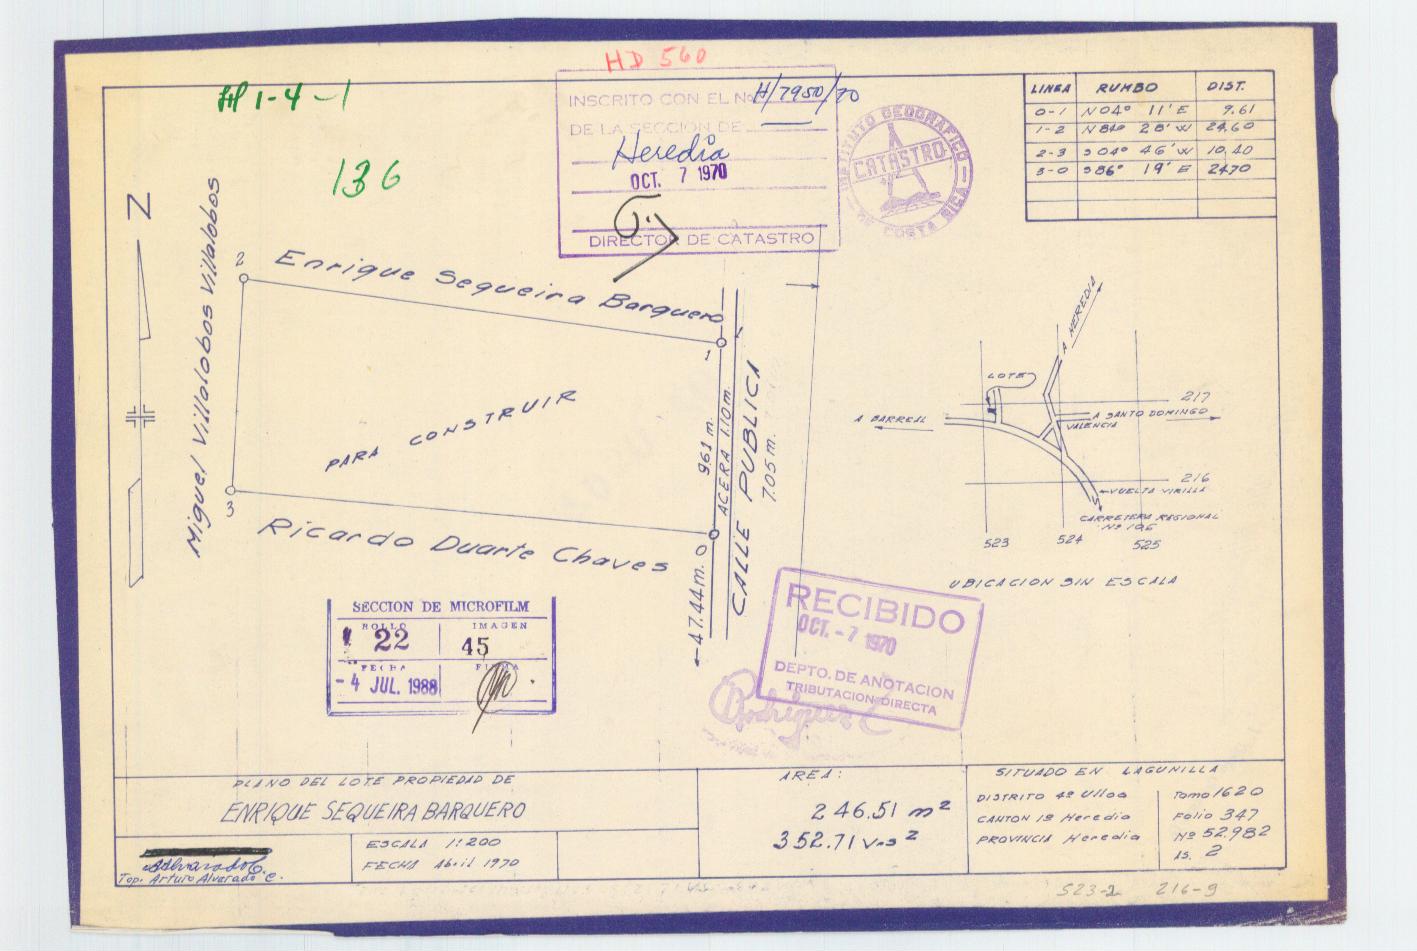 HD 560
HP 1-4-1
136
INSCRITO CON EL No H/7950/70
DE LA SECCION DE
Heredia
OCT. 7 1970
DIRECTOR DE CATASTRO
INSTITUTO GEOGRAFICO
CATASTRO
DE COSTA RICA
LINEA RUMBO DIST.
0-1 N 04° 11' E 9.61
1-2 N 81° 28' W 24.60
2-3 S 04° 46' W 10.40
3-0 S 86° 19' E 24.70
N
Miguel Villalobos Villalobos
2
Enrique Sequeira Barquero
1
PARA CONSTRUIR
3
Ricardo Duarte Chaves
0
961 m.
ACERA 1.10m.
CALLE PUBLICA
7.05 m.
47.44 m.
A HEREDIA
LOTE
217
A BARREAL
A SANTO DOMINGO
VALENCIA
216
VUELTA VIRILLA
CARRETERA REGIONAL
Nº 106
523
524
525
UBICACION SIN ESCALA
SECCION DE MICROFILM
ROLLO IMAGEN
22 45
FECHA FIRMA
- 4 JUL. 1988
RECIBIDO
OCT. - 7 1970
DEPTO. DE ANOTACION
TRIBUTACION DIRECTA
PLANO DEL LOTE PROPIEDAD DE
ENRIQUE SEQUEIRA BARQUERO
AREA:
246.51 m²
352.71 vrs²
SITUADO EN LAGUNILLA
DISTRITO 4º Ulloa
CANTON 1º Heredia
PROVINCIA Heredia
Tomo 1620
Folio 347
Nº 52.982
AS. 2
ESCALA 1:200
FECHA Abril 1970
Top. Arturo Alvarado C.
523-2 216-9